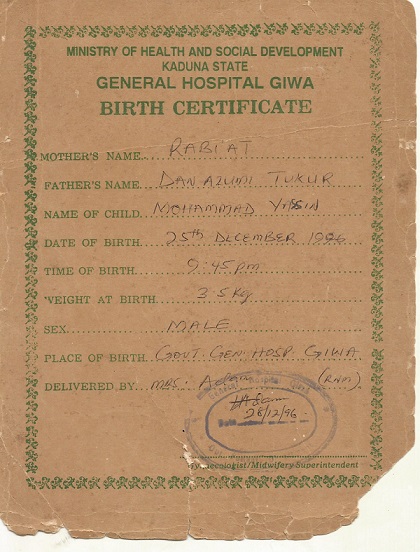 MINISTRY OF HEALTH AND SOCIAL DEVELOPMENT
KADUNA STATE
GENERAL HOSPITAL GIWA
BIRTH CERTIFICATE
MOTHER'S NAME RABI'AT
FATHER'S NAME DAN AZUMI TUKUR
NAME OF CHILD MOHAMMAD YASIN
DATE OF BIRTH 25th DECEMBER 1996
TIME OF BIRTH 9:45pm
WEIGHT AT BIRTH 3.5kg
SEX MALE
PLACE OF BIRTH GOVT. GEN. HOSP. GIWA
DELIVERED BY MRS. (RNM)
28/12/96
Gynaecologist/Midwifery Superintendent